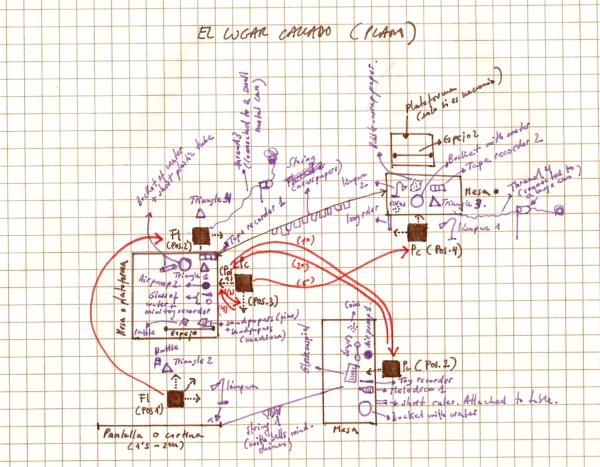 EL LUGAR CALLADO (PLANO)
Plataforma
(solo si es necesario)
Espejo 2
Bucket with water
Tape recorder 2
thread 3
(connected to a small
metal can)
Bucket of water
+ short plastic tube
String
(newspapers)
lámpara
2
Mesa
Thread 4
(connected to
a large can)
Triangle 3
long ruler
lámpara 1
Triangle 4
Fl
(Pos. 2)
Tape recorder 1
Pc (Pos. 4)
(1º)
(2º)
Pc
(Pos. 3)
Mesa o plataforma
Triangle 1
Air pump 2
Glass of
water +
mini toy recorder
Rattle
Espejo
Sandpapers (fine)
+ Sandpapers
(medium)
Coins
Air pump 1
Glockenspiel
Rattle
Triangle 2
lámpara
Fl
(Pos 1)
Pc (Pos. 2)
Toy recorder
Melodica 1
short ruler. Attached to table.
Bucket with water
String 1
(with bells, wind-
chimes)
Mesa
Pantalla o cortina
(1'5 - 2m)